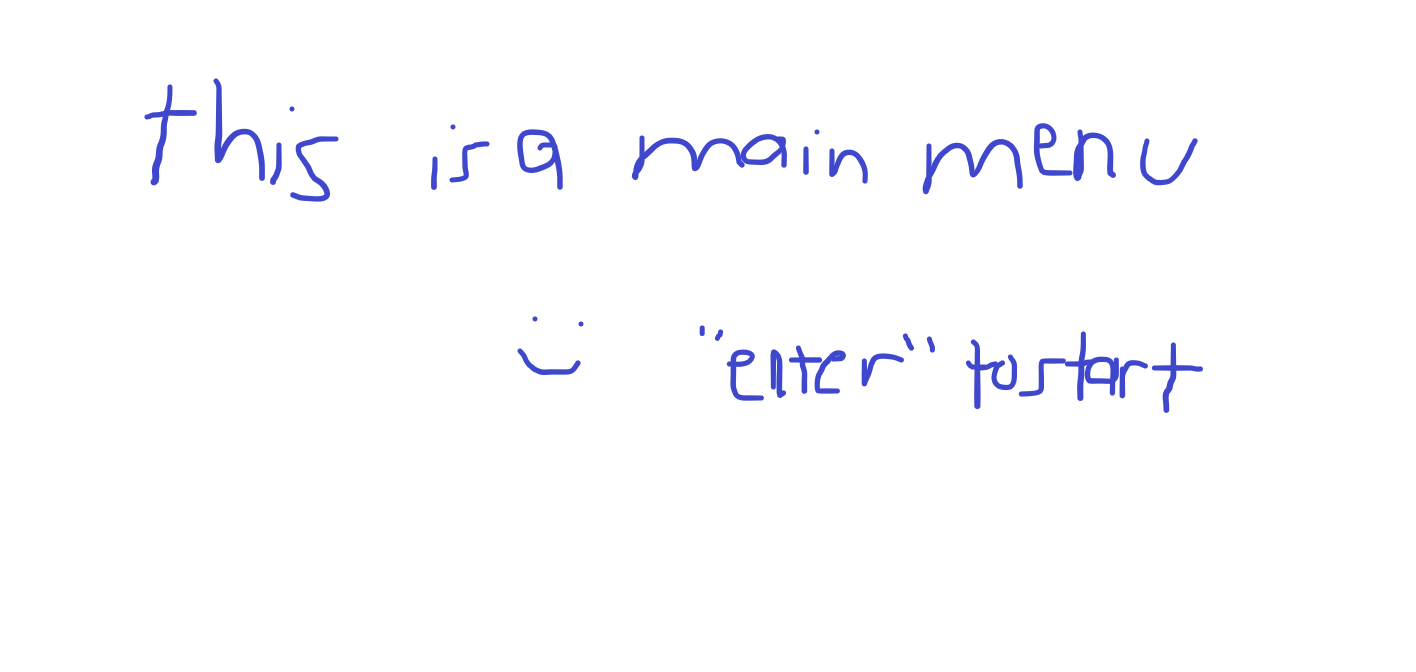 this is a main menu
"enter" to start